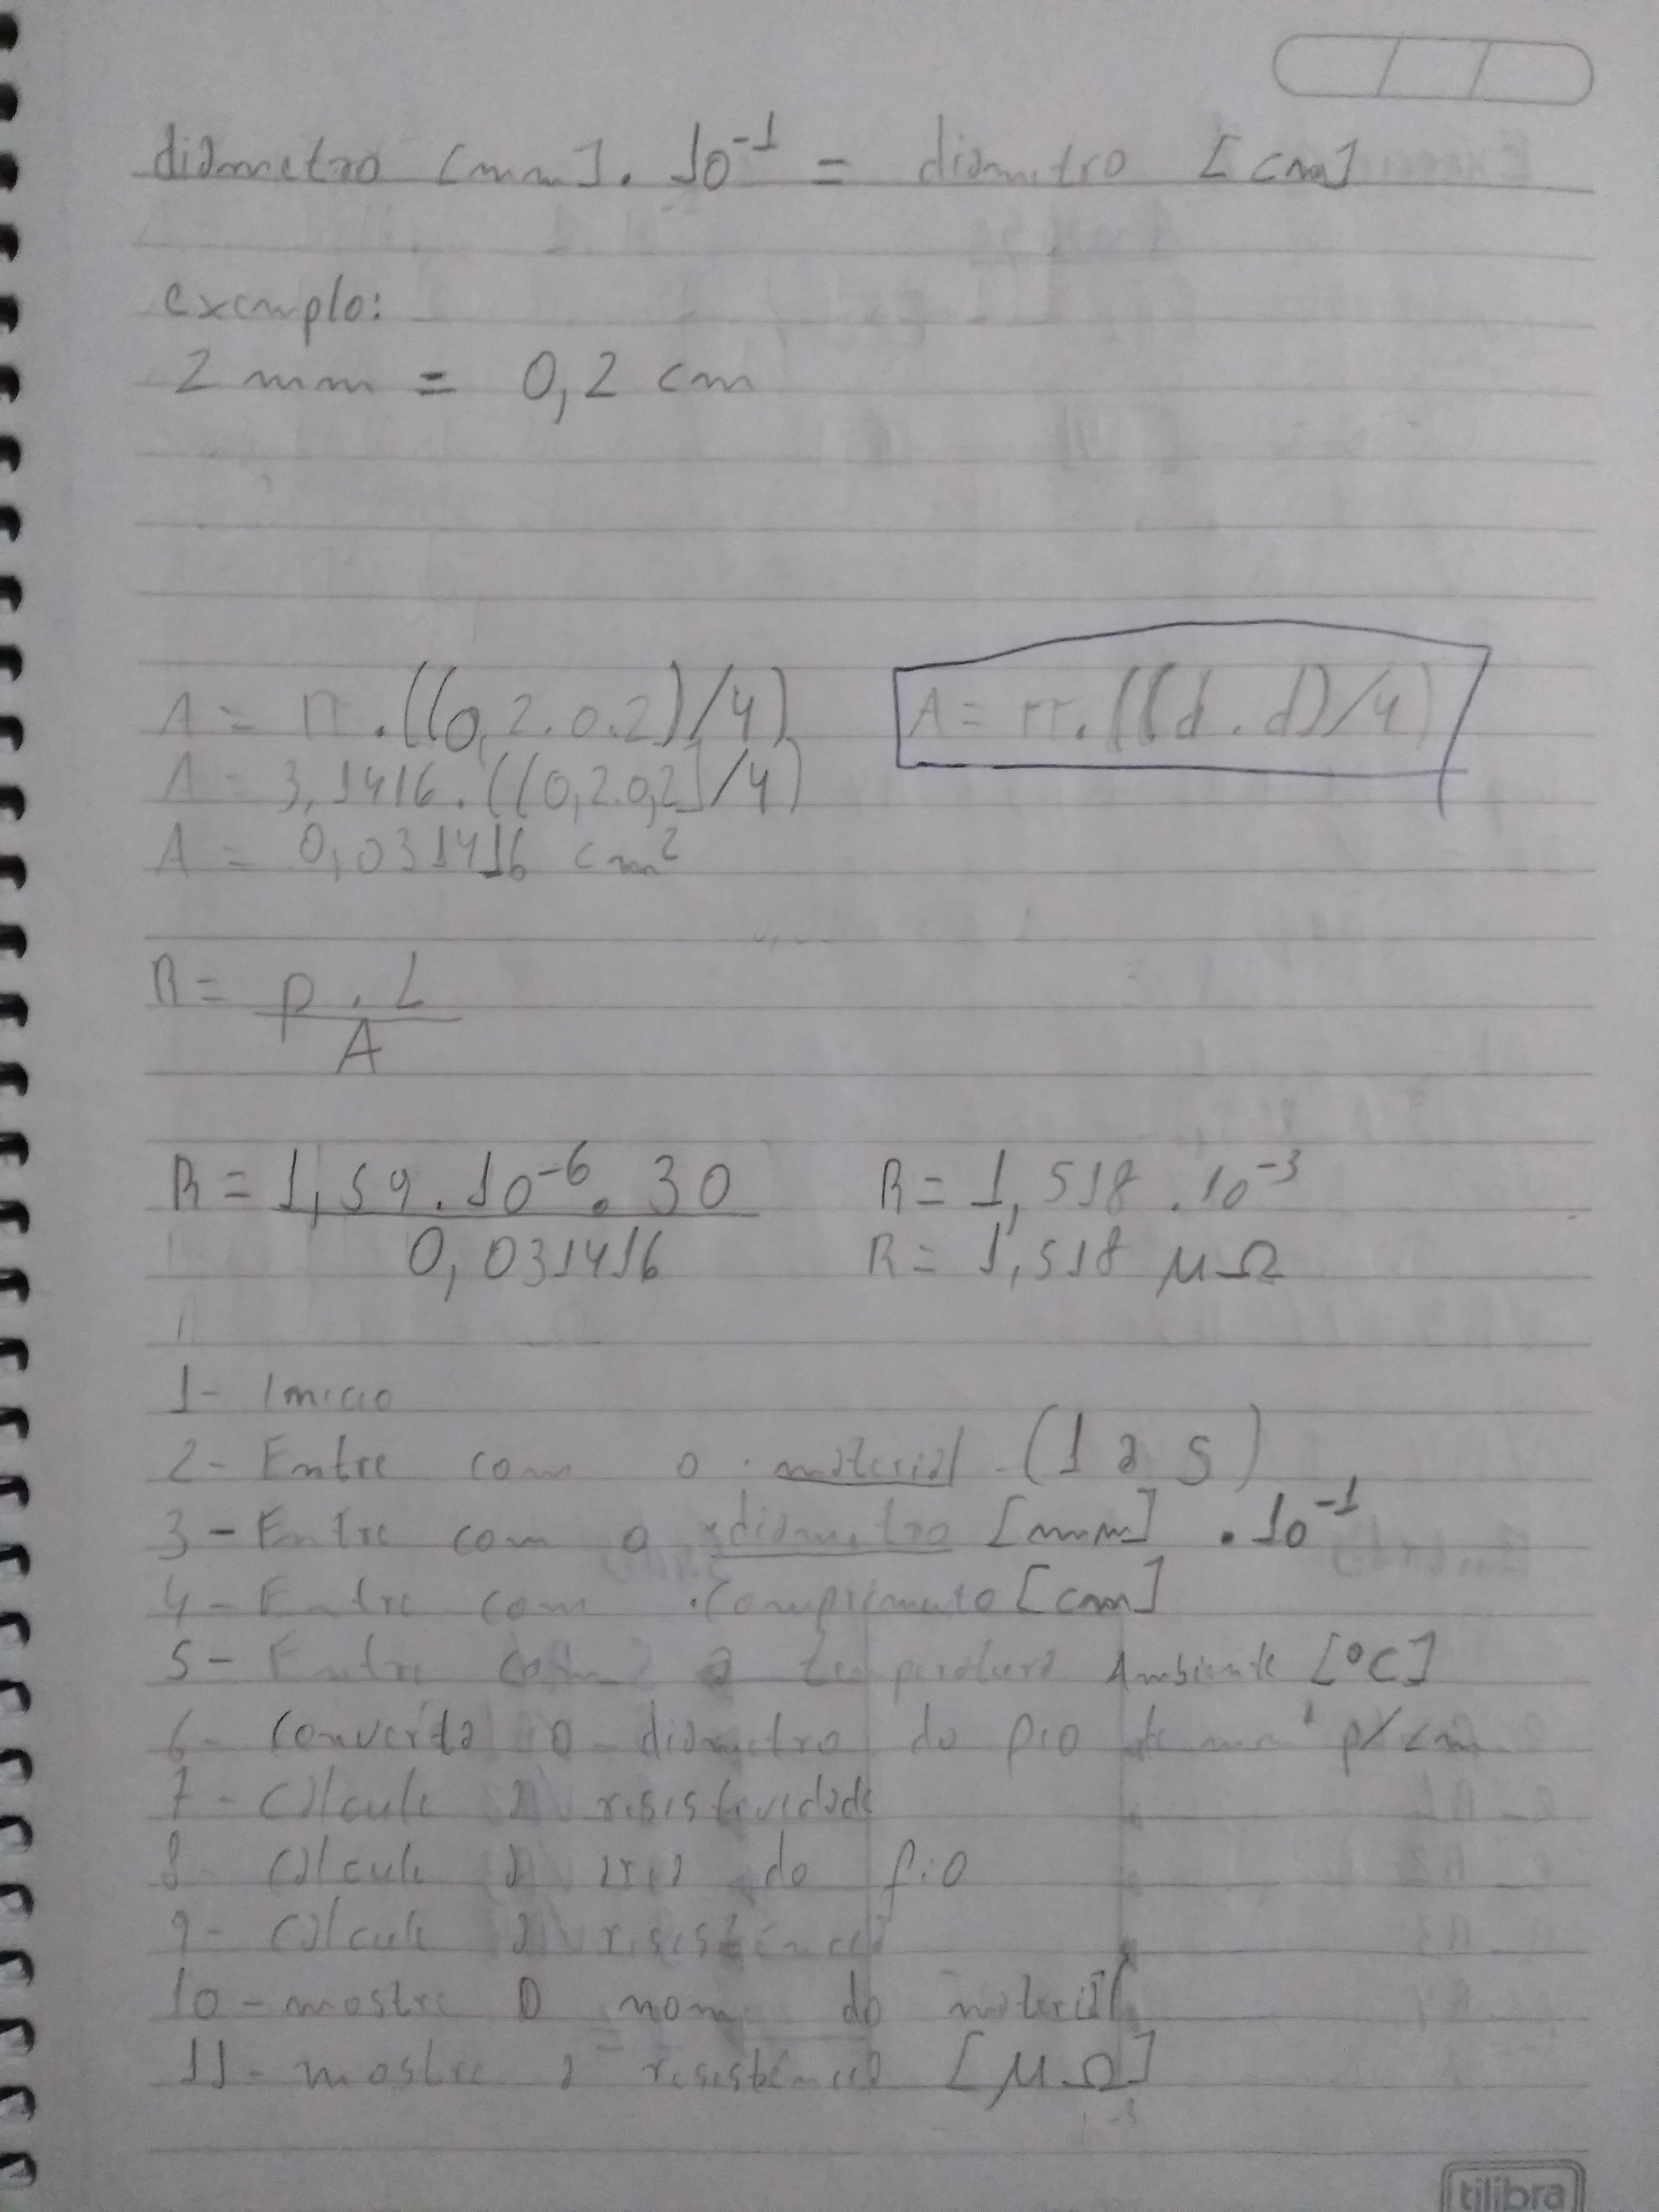 diametro [mm] . 10⁻¹ = diametro [cm]
exemplo:
2 mm = 0,2 cm
A = π . ((0,2.0.2)/4) A = π. ((d . d)/4)
A = 3,1416 . ((0,2.0,2)/4)
A = 0,031416 cm²
R = ρ . L / A
R = 1,59 . 10⁻⁶ . 30 / 0,031416 R = 1,518 . 10⁻³
R = 1,518 μΩ
1- Inicio
2- Entre com o material (1 a 5)
3- Entre com o diametro [mm] . 10⁻¹
4- Entre com comprimento [cm]
5- Entre com a temperatura Ambiente [°C]
6- Converta o diametro do fio de mm p/ cm
7- Calcule a resistividade
8- Calcule a area do fio
9- Calcule a resistência
10- mostre o nome do material
11- mostre a resistência [μΩ]
tilibra